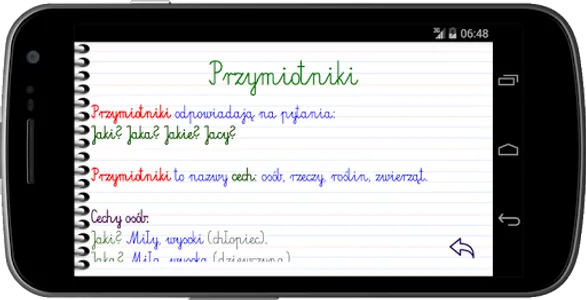 3G 06:48
Przymiotniki
Przymiotniki odpowiadają na pytania:
Jaki? Jaka? Jakie? Jacy?
Przymiotniki to nazwy cech: osób, rzeczy, roślin, zwierząt.
Cechy osób:
Jaki? Miły, wysoki (chłopiec).
Jaka? Miła, wysoka (dziewczyna)